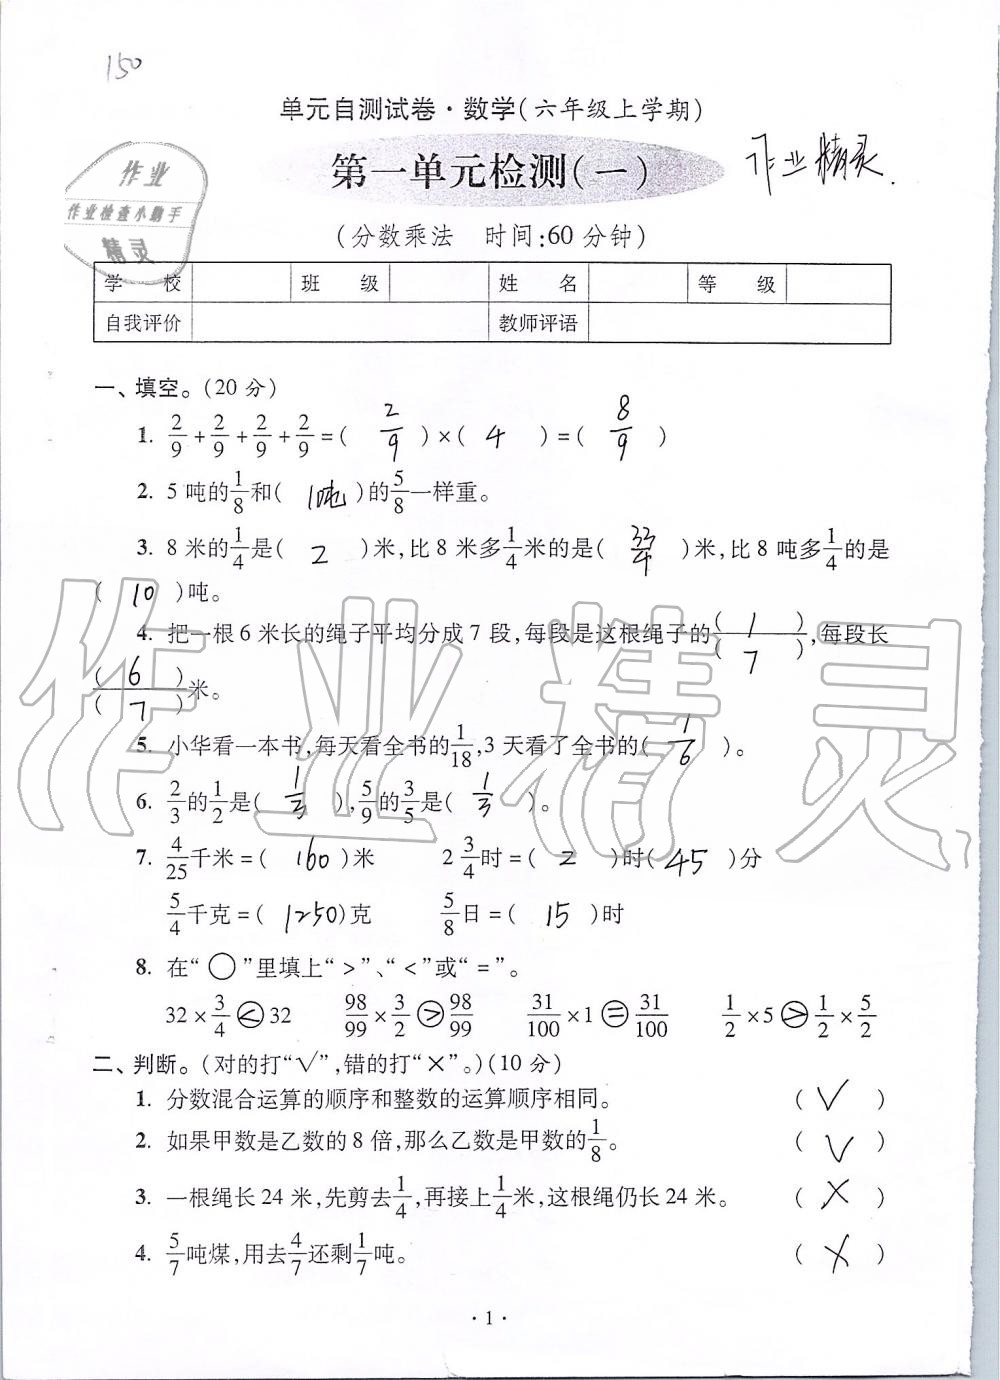 150
单元自测试卷·数学(六年级上学期)
第一单元检测(一)
作业精灵.
作业
作业检查小助手
精灵
(分数乘法 时间:60分钟)
学 校 班 级 姓 名 等 级
自我评价 教师评语
一、填空。(20分)
1. 2/9+2/9+2/9+2/9=( 2/9 )×( 4 )=( 8/9 )
2. 5吨的1/8和( 1吨 )的5/8一样重。
3. 8米的1/4是( 2 )米,比8米多1/4米的是( 33/4 )米,比8吨多1/4的是
( 10 )吨。
4. 把一根6米长的绳子平均分成7段,每段是这根绳子的( 1 )/( 7 ),每段长
( 6 )/( 7 )米。
5. 小华看一本书,每天看全书的1/18,3天看了全书的( 1/6 )。
6. 2/3的1/2是( 1/3 ),5/9的3/5是( 1/3 )。
7. 4/25千米=( 160 )米 2 3/4时=( 2 )时( 45 )分
5/4千克=( 1250 )克 5/8日=( 15 )时
8. 在“○”里填上“>”、“<”或“=”。
32×3/4<32 98/99×3/2>98/99 31/100×1=31/100 1/2×5>1/2×5/2
二、判断。(对的打“√”,错的打“×”。)(10分)
1. 分数混合运算的顺序和整数的运算顺序相同。 ( √ )
2. 如果甲数是乙数的8倍,那么乙数是甲数的1/8。 ( √ )
3. 一根绳长24米,先剪去1/4,再接上1/4米,这根绳仍长24米。 ( × )
4. 5/7吨煤,用去4/7还剩1/7吨。 ( × )
·1·
作业精灵